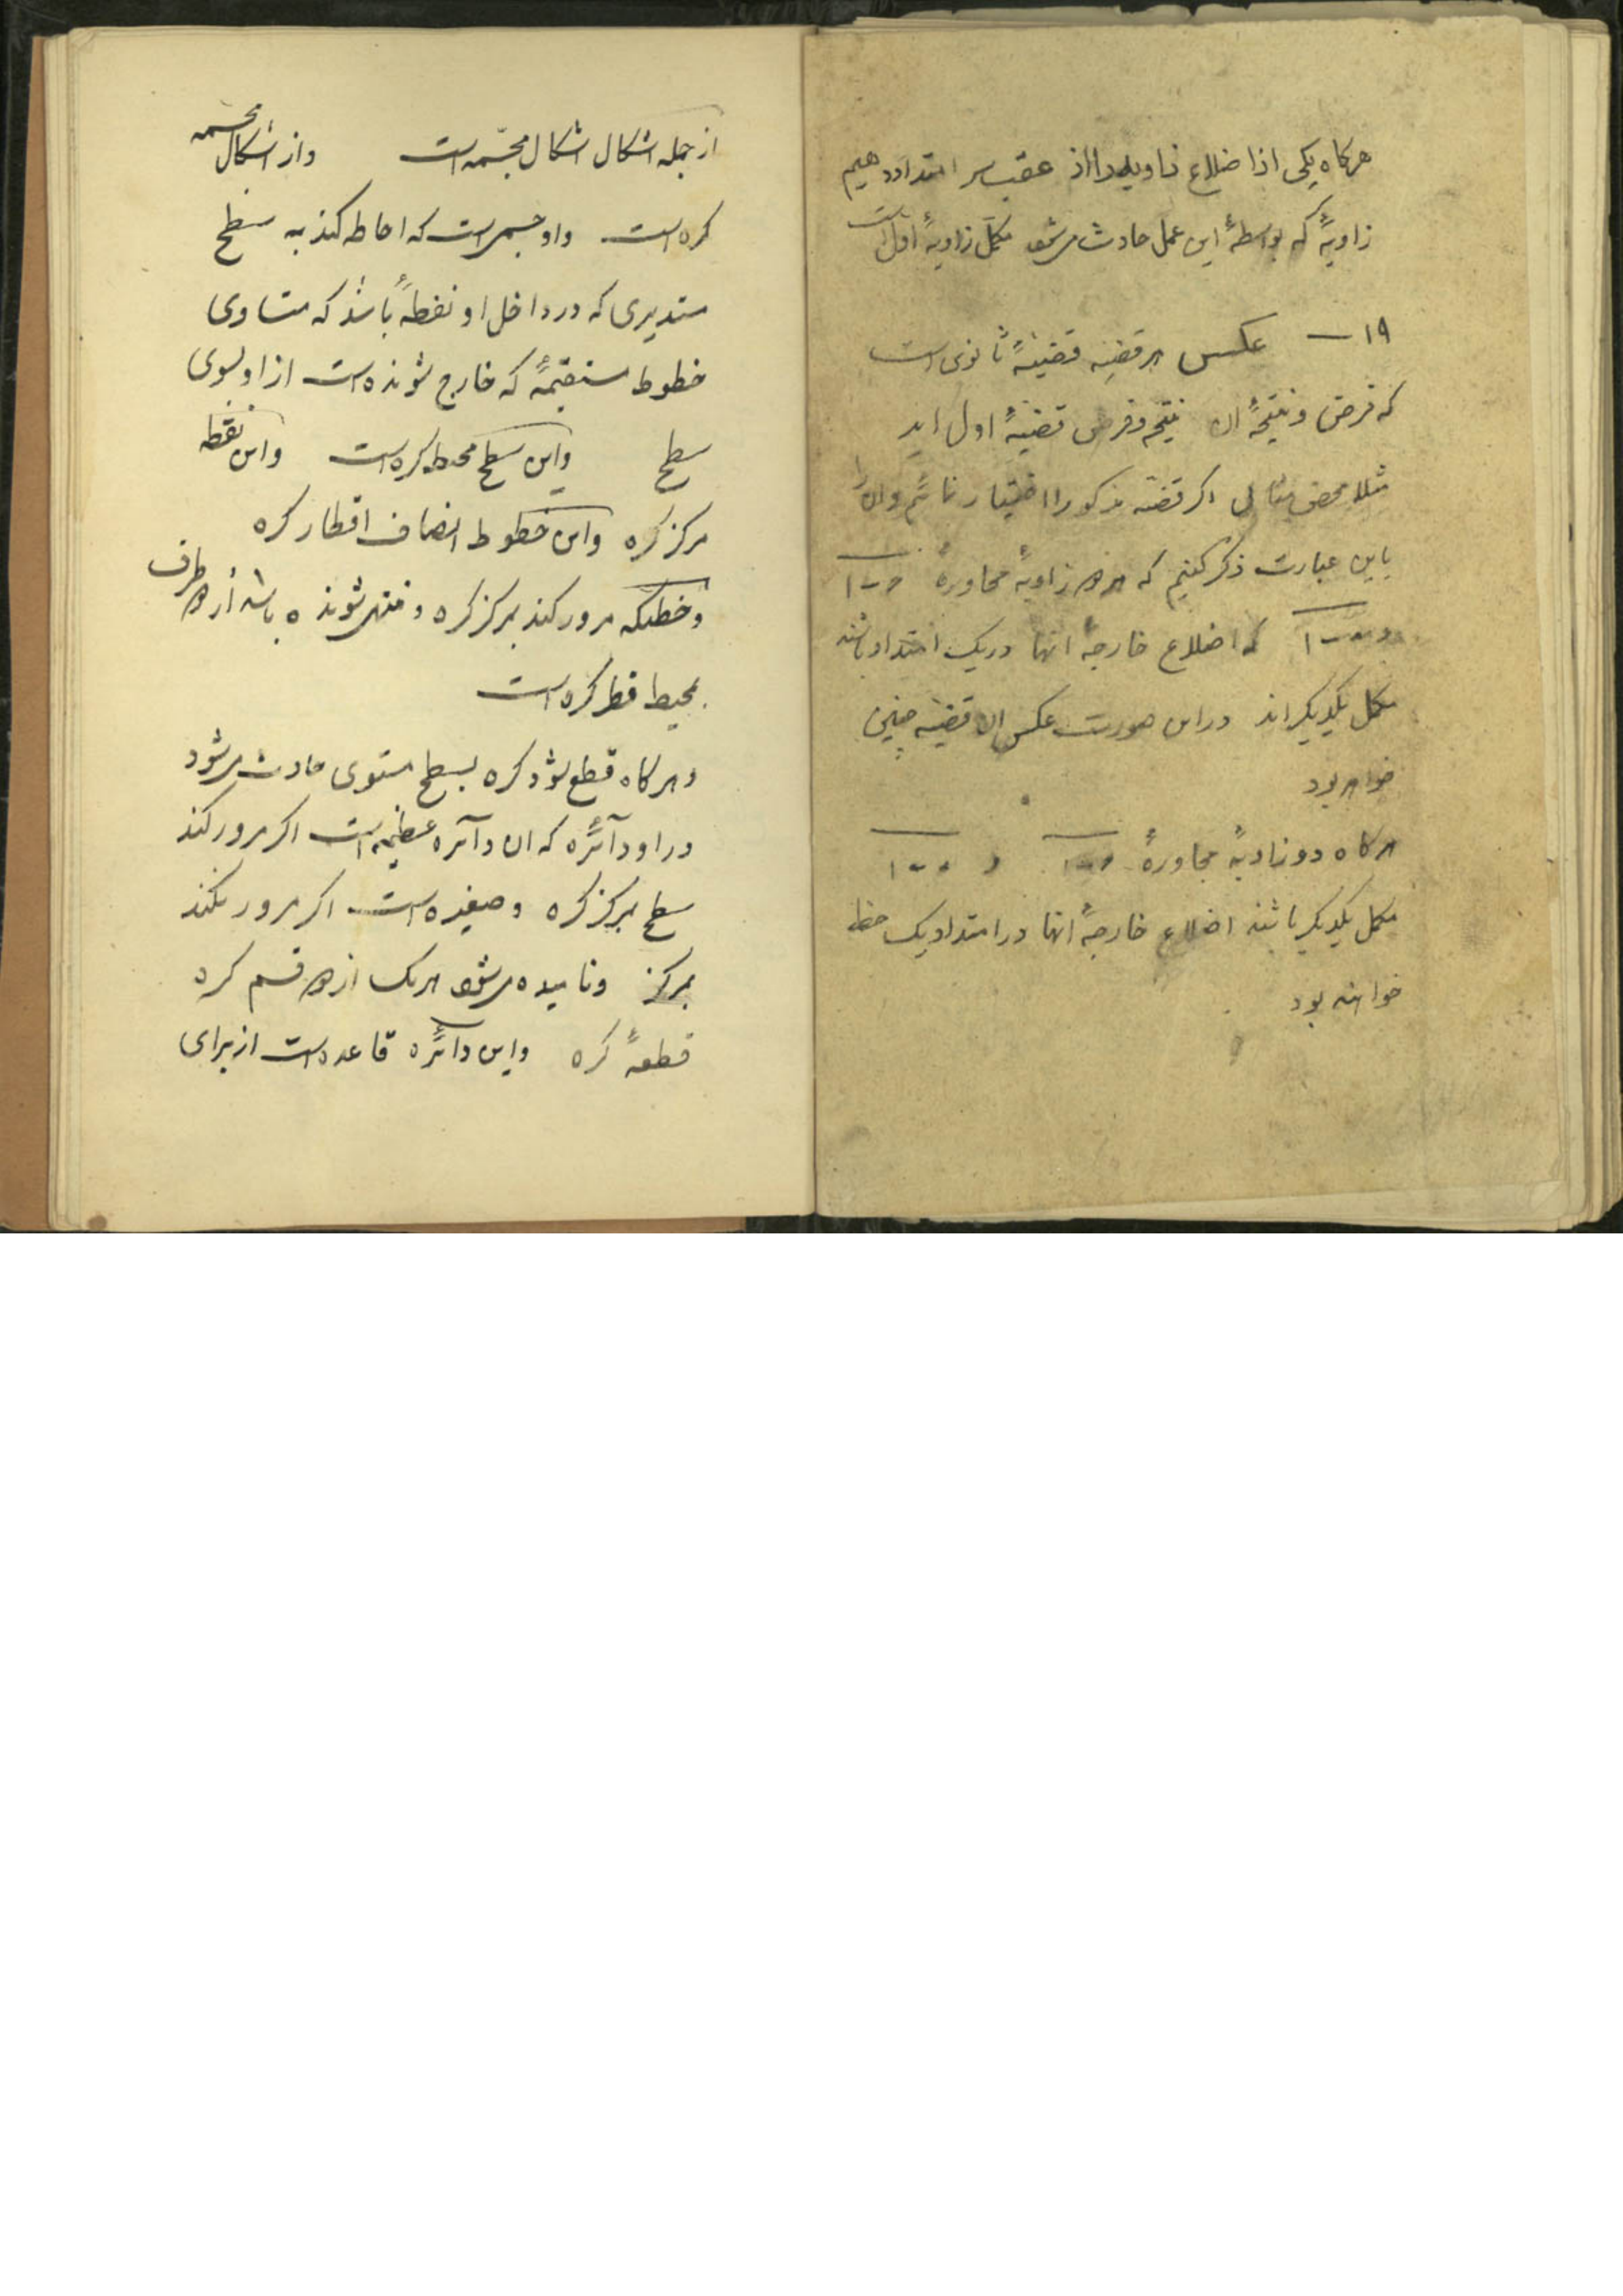 هرکاه یکی از اضلاع زاویه را از عقب سر امتداد دهیم
زاویهٔ که بواسطهٔ این عمل حادث میشود مکمّل زاویهٔ اول است
۱۹ — عکس هر قضیه قضیهٔ ثانوی است
که فرض و نتیجهٔ ان نتیجه و فرض قضیهٔ اول اند
مثلا محض مثالی اکر قضیه مذکور را اختیار نمائیم و انرا
باین عبارت ذکر کنیم که هر دو زاویهٔ مجاورهٔ
که اضلاع خارجهٔ انها در یک امتداد باشند
مکمل یکدیکراند در این صورت عکس ان قضیه چنین
خواهد بود
هرکاه دو زاویهٔ مجاورهٔ
مکمل یکدیکر باشند اضلاع خارجهٔ انها در امتداد یک خط
خواهند بود
از جمله اشکال اشکال مجسّمه است واز اشکال مجسمه
کره است واو جسمی است که احاطه کند به سطح
مستدیری که در داخل او نقطهٔ باشد که متساوی
خطوط مستقیمهٔ که خارج شونده است از او بسوی
سطح واین سطح محیط کره است واین نقطه
مرکز کره واین خطوط انصاف اقطار کره
وخطیکه مرور کند بمرکز کره و منتهی شونده باشد از دو طرف
بمحیط قطر کره است
وهرکاه قطع شود کره بسطح مستوی حادث میشود
در او دآئره که ان دآئره عظیمه است اکر مرور کند
سطح بمرکز کره وصغیره است اکر مرور نکند
بمرکز ونامیده میشود هریک از دو قسم کره
قطعهٔ کره واین دآئره قاعده است از برای